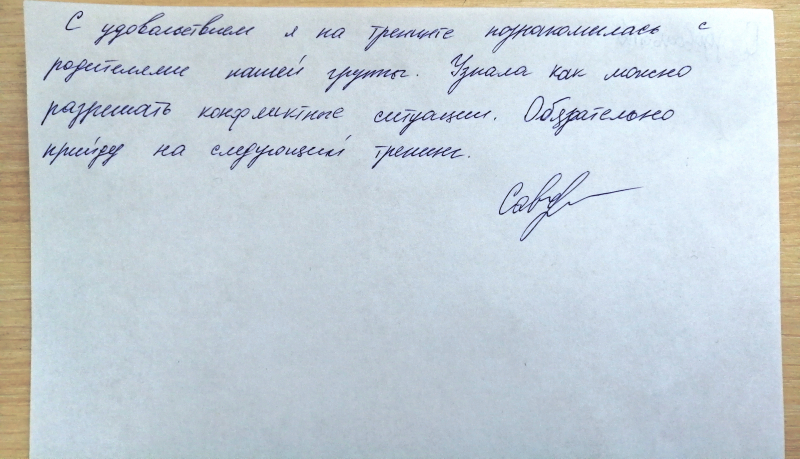 С удовольствием я на тренинге познакомилась с
родителями нашей группы. Узнала как можно
разрешать конфликтные ситуации. Обязательно
прийду на следующий тренинг.